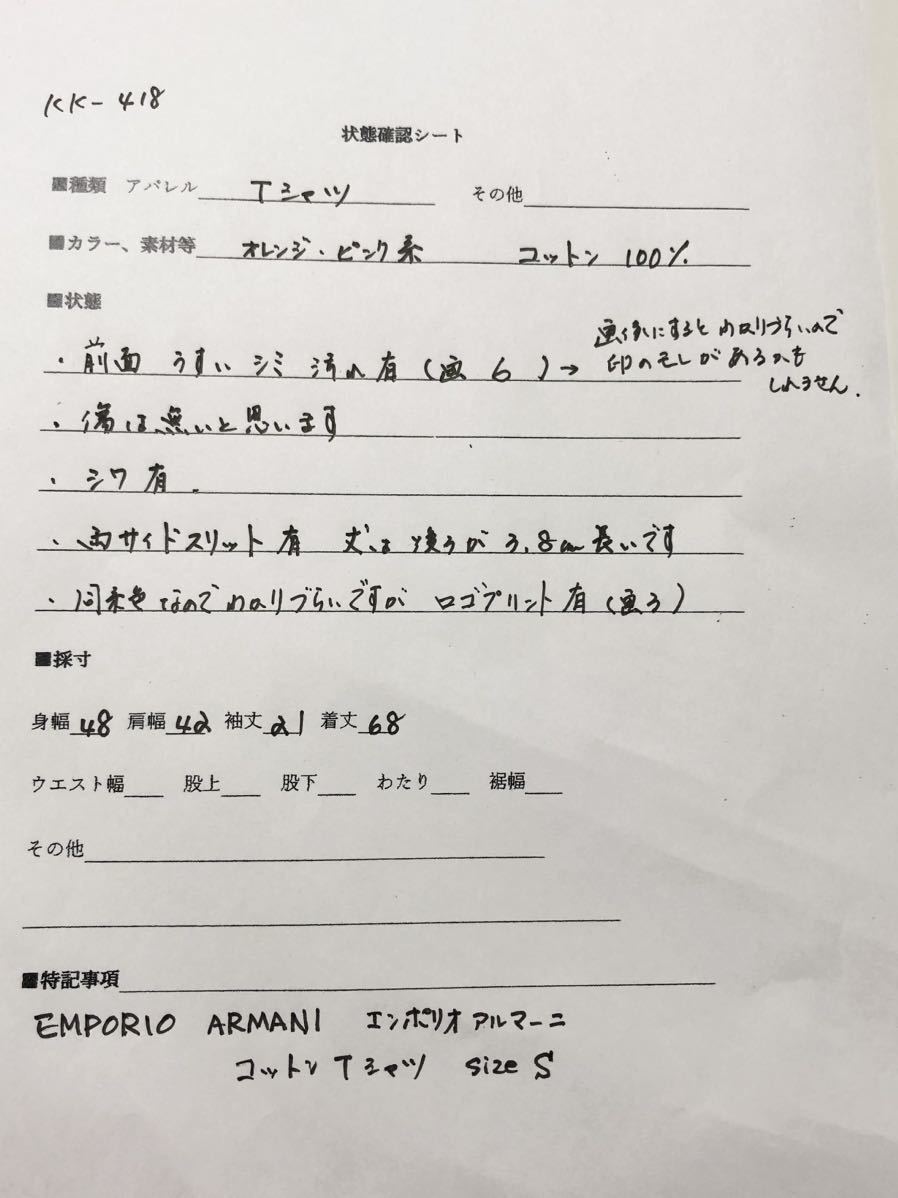 KK-418
状態確認シート
■種類 アパレル Tシャツ その他
■カラー、素材等 オレンジ・ピンク系 コットン 100%
■状態
・前面 うすい シミ 汚れ 有 (画 6 ) → 画像にすると わかりづらいので
印のもれがあるかも
しれません.
・傷は無いと思います
・シワ 有 .
・両サイドスリット 有 丈は 後ろが 3.8cm 長いです
・同系色なので わかりづらいですが ロゴプリント 有 (画3)
■採寸
身幅 48 肩幅 42 袖丈 21 着丈 68
ウエスト幅 股上 股下 わたり 裾幅
その他
■特記事項
EMPORIO ARMANI エンポリオ アルマーニ
コットン Tシャツ size S